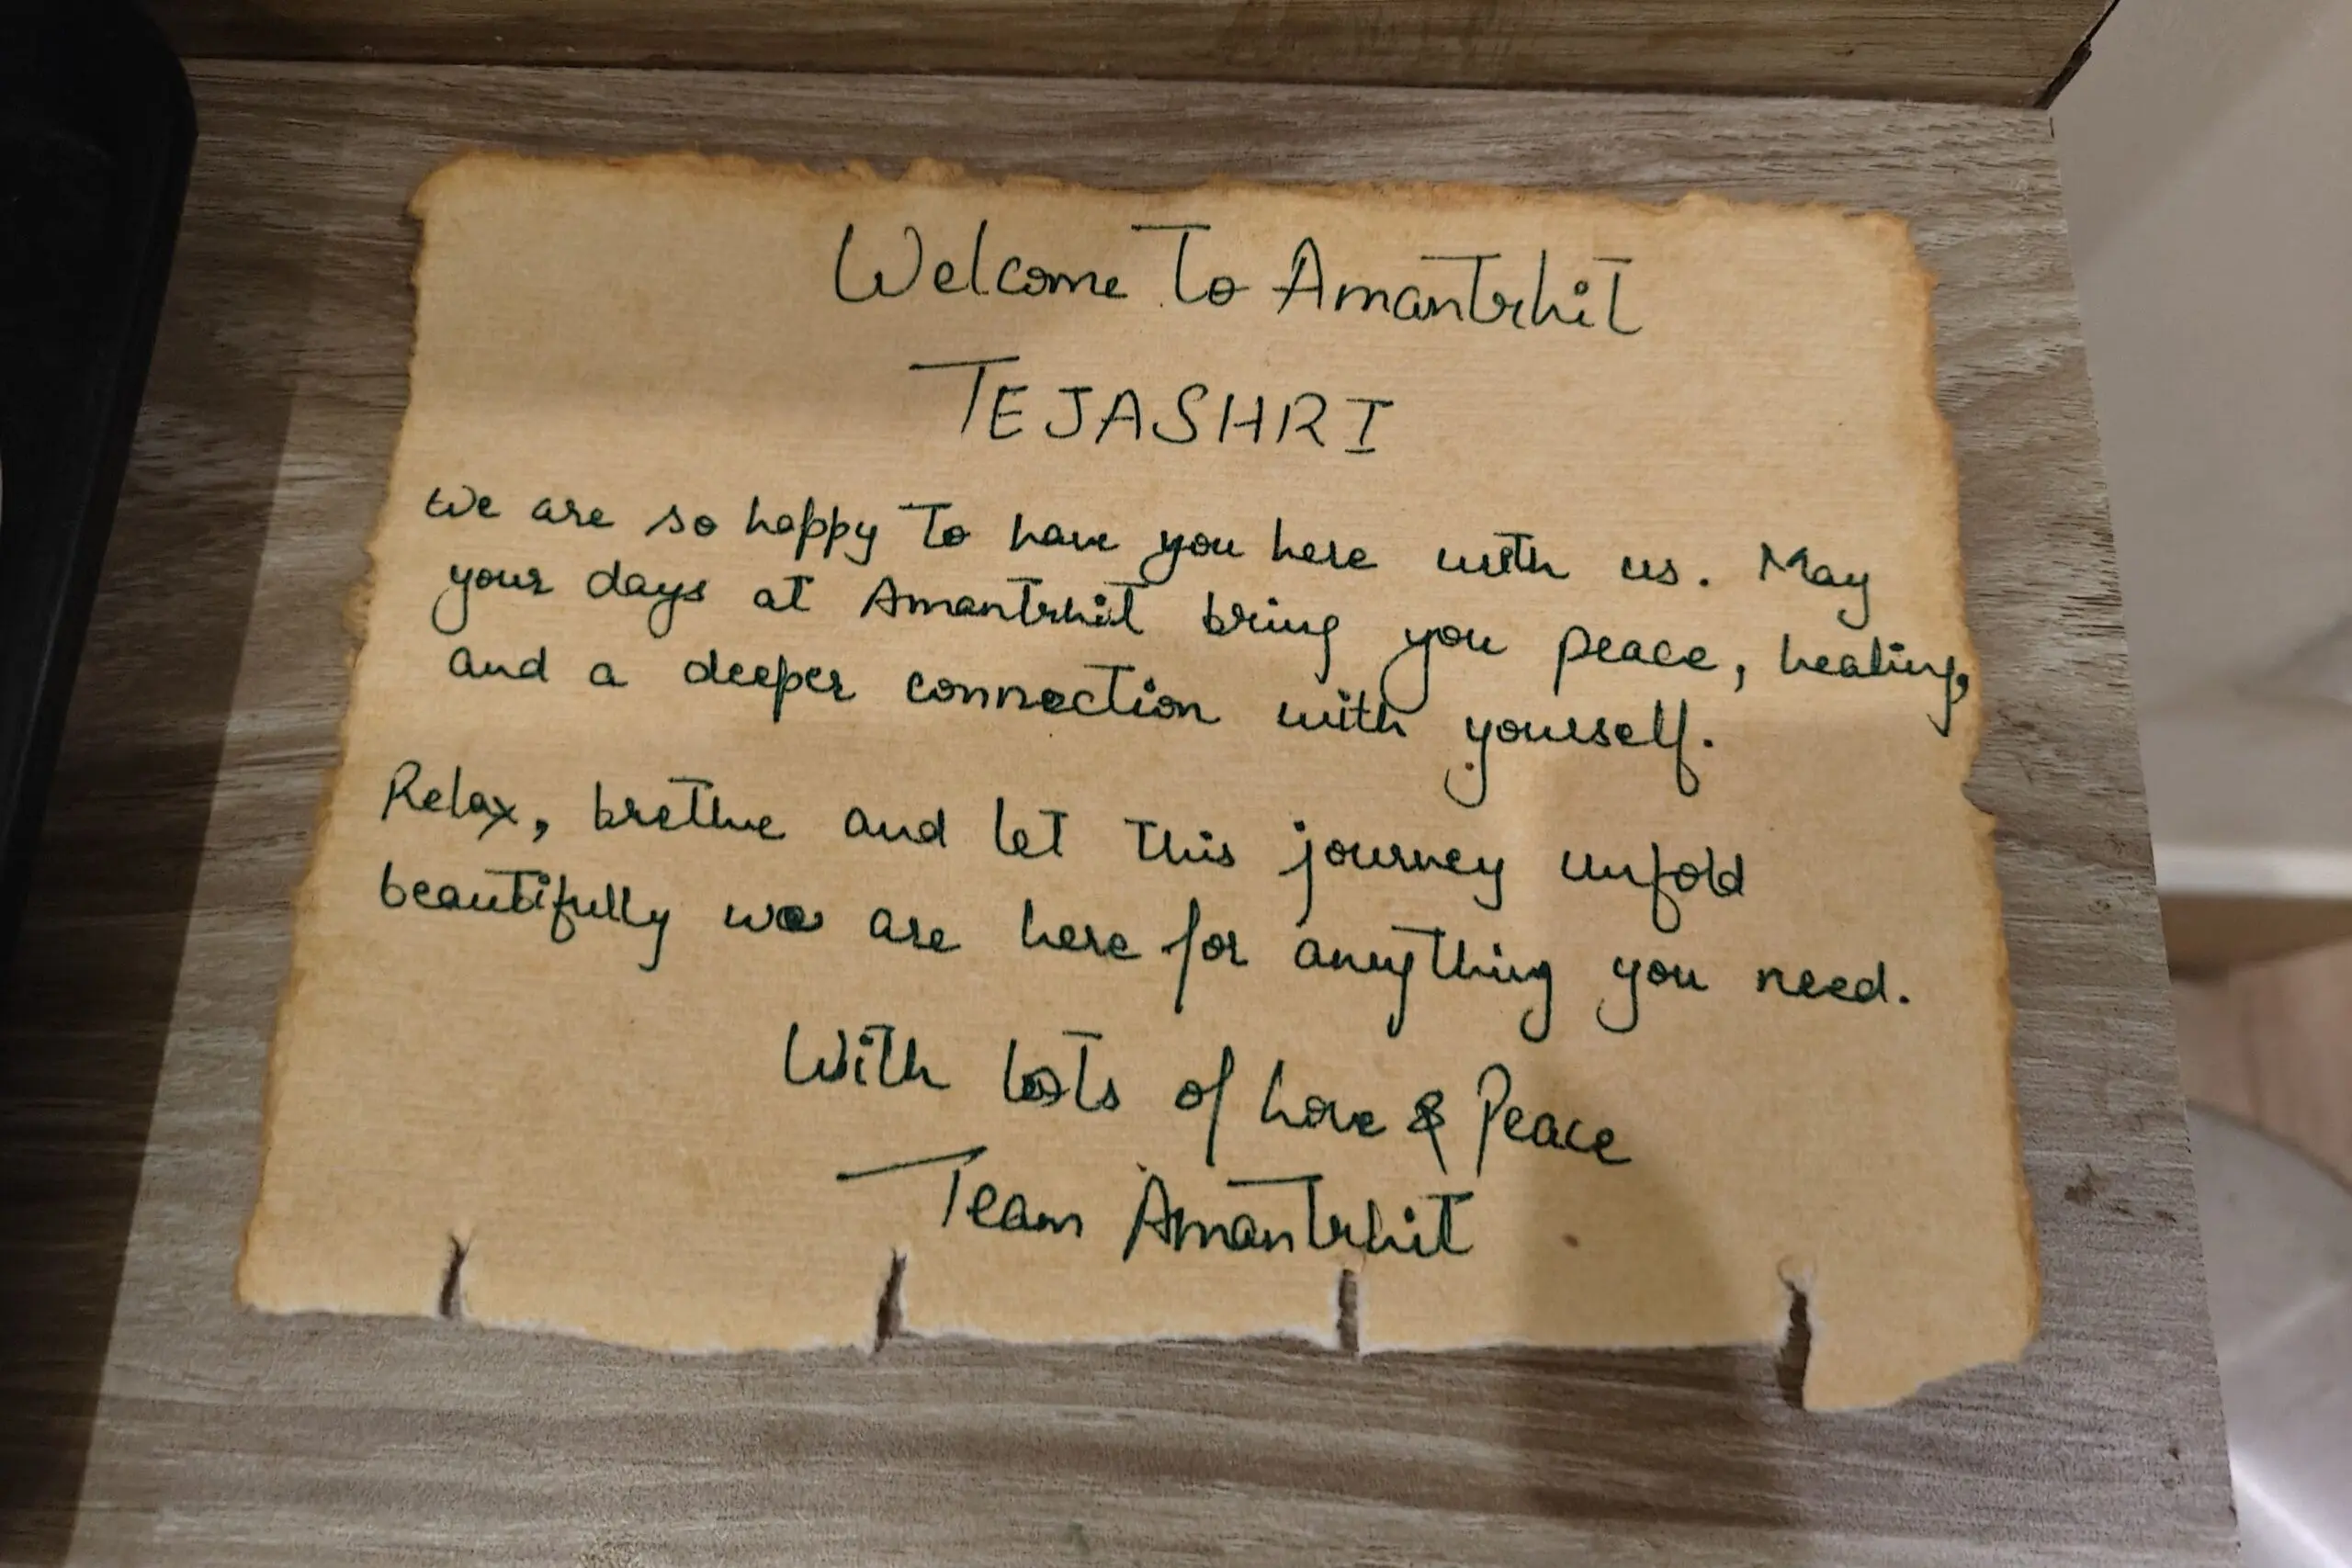 Welcome To Amantrhit
TEJASHRI
We are so happy To have you here with us. May
your days at Amantrhit bring you peace, healing,
and a deeper connection with yourself.
Relax, brethe and let this journey unfold
beautifully we are here for anything you need.
With lots of Love & Peace
Team Amantrhit